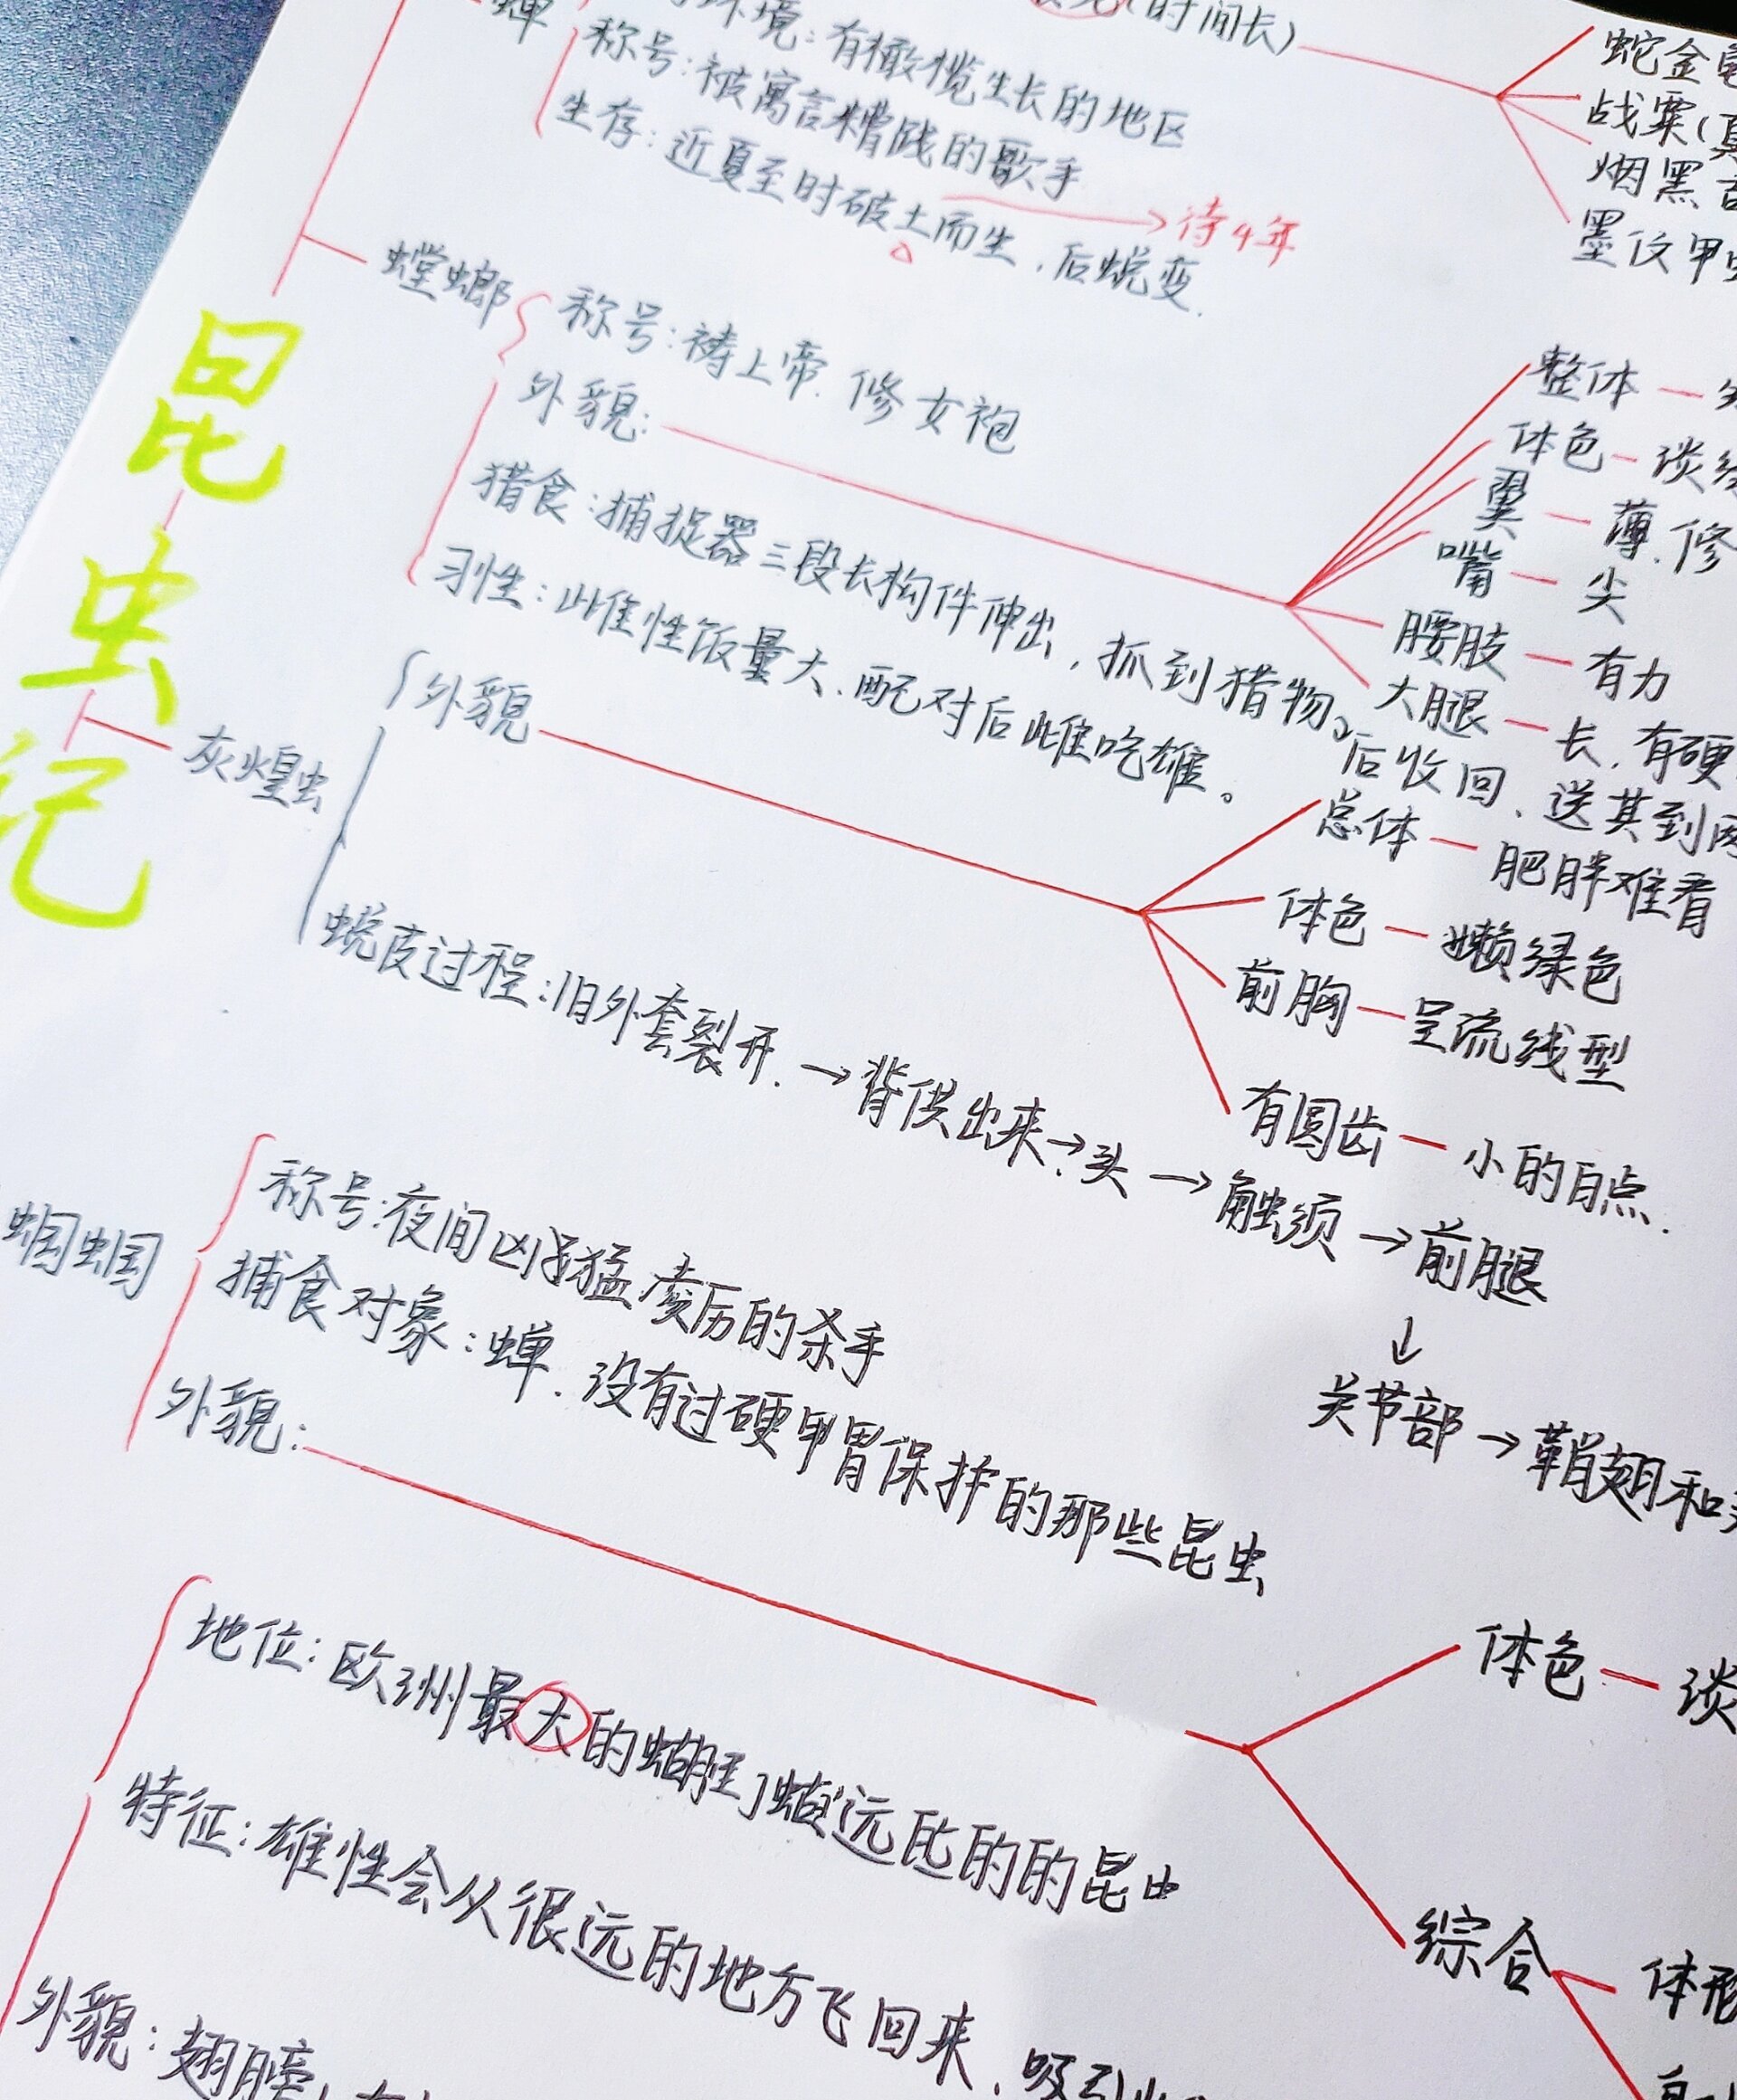 昆虫记
蝉
(时间长)
环境：有橄榄生长的地区
称号：被寓言糟践的歌手
生存：近夏至时破土而生，后蜕变.
待4年
蛇金
战粟(
烟黑
墨仪甲
螳螂
称号：祷上帝.修女袍
外貌：
整体
体色—淡
翼—薄.修
嘴—尖
腰肢—有力
大腿—长.有硬
猎食：捕捉器三段长构件伸出，抓到猎物。后收回、送其到
习性：雌性饭量大、配对后雌吃雄。
灰蝗虫
外貌
总体—肥胖难看
体色—嫩绿色
前胸—呈流线型
有圆齿—小的白点.
蜕皮过程：旧外套裂开.→背供出来→头→触须→前腿
↓
关节部→鞘翅和
蝈蝈
称号：夜间凶猛凌厉的杀手
捕食对象：蝉.没有过硬甲胄保护的那些昆虫
外貌：
体色—淡
综合
体形
地位：欧洲最大的
远的昆虫
特征：雄性会从很远的地方飞回来.吸引
外貌：翅膀